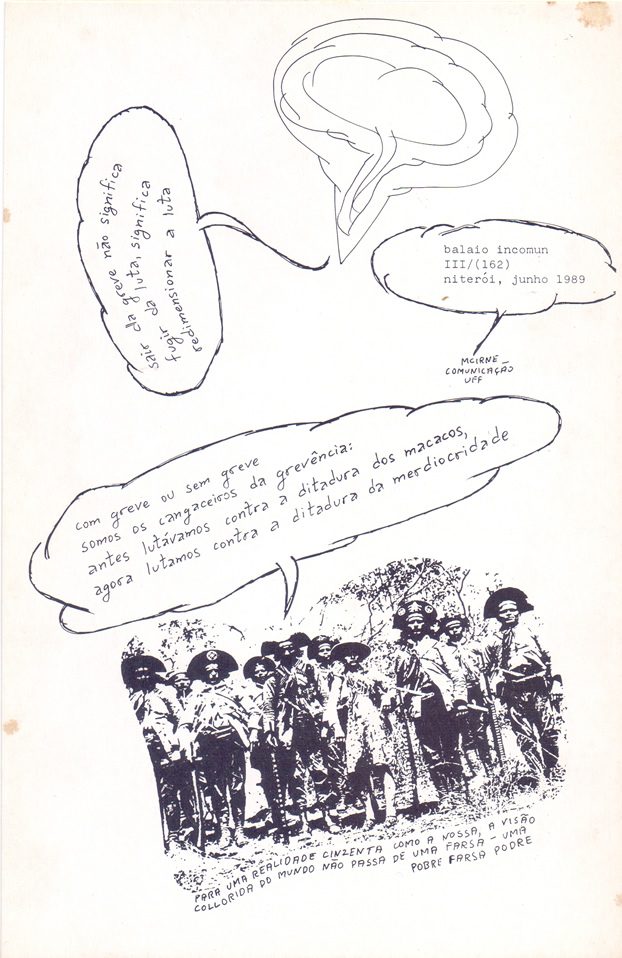 sair da greve não significa
fugir da luta, significa
redimensionar a luta
balaio incomun
III/(162)
niterói, junho 1989
MCIRNE_
COMUNICAÇÃO
UFF
com greve ou sem greve
somos os cangaceiros da grevência:
antes lutávamos contra a ditadura dos macacos,
agora lutamos contra a ditadura da merdiocridade
PARA UMA REALIDADE CINZENTA COMO A NOSSA, A VISÃO
COLLORIDA DO MUNDO NÃO PASSA DE UMA FARSA - UMA
POBRE FARSA PODRE